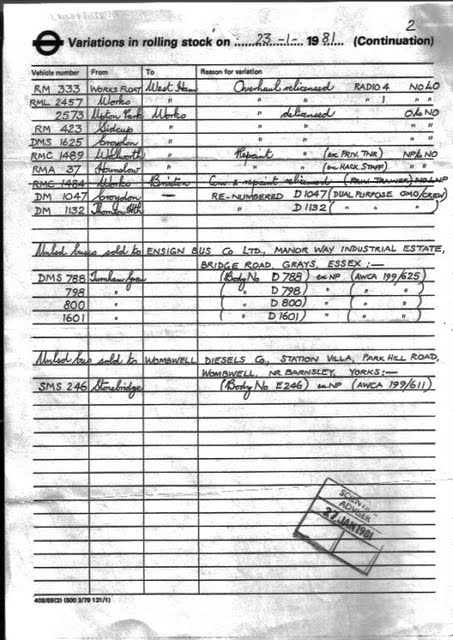 2
Variations in rolling stock on 23-1- 1981. (Continuation)
Vehicle number From To Reason for variation
RM 333 WORKS FLOAT West Ham Overhaul relicensed RADIO 4 NO LO
RML 2457 Works " " " " 1 " "
2573 Upton Park Works " delicensed O to NO
RM 423 Sidcup " " " " "
DMS 1625 Croydon " " " " "
RMC 1489 Walworth " Repaint (ex PRIV. TNR) NP to NO
RMA 37 Hounslow " " (ex HACK STAFF) " "
RMC 1484 Works Brixton & repaint relicensed (PRIV. TRAINER) NO to NP
DM 1047 Croydon — RE-NUMBERED D1047 (DUAL PURPOSE OMO/CREW)
DM 1132 Thornton Hth — " D1132 ( " " " )
Unlsd buses sold to ENSIGN BUS Co LTD., MANOR WAY INDUSTRIAL ESTATE,
BRIDGE ROAD, GRAYS, ESSEX :—
DMS 788 Turnham Grn (Body No D788) ex NP (AWCA 199/625)
798 " ( " D798) " ( " " )
800 " ( " D800) " ( " " )
1601 " ( " D1601) " ( " " )
Unlsd bus sold to WOMBWELL DIESELS Co., STATION VILLA, PARK HILL ROAD,
WOMBWELL, NR. BARNSLEY, YORKS :—
SMS 246 Stonebridge (Body No E246) ex NP (AWCA 199/611)
27 JAN 1981